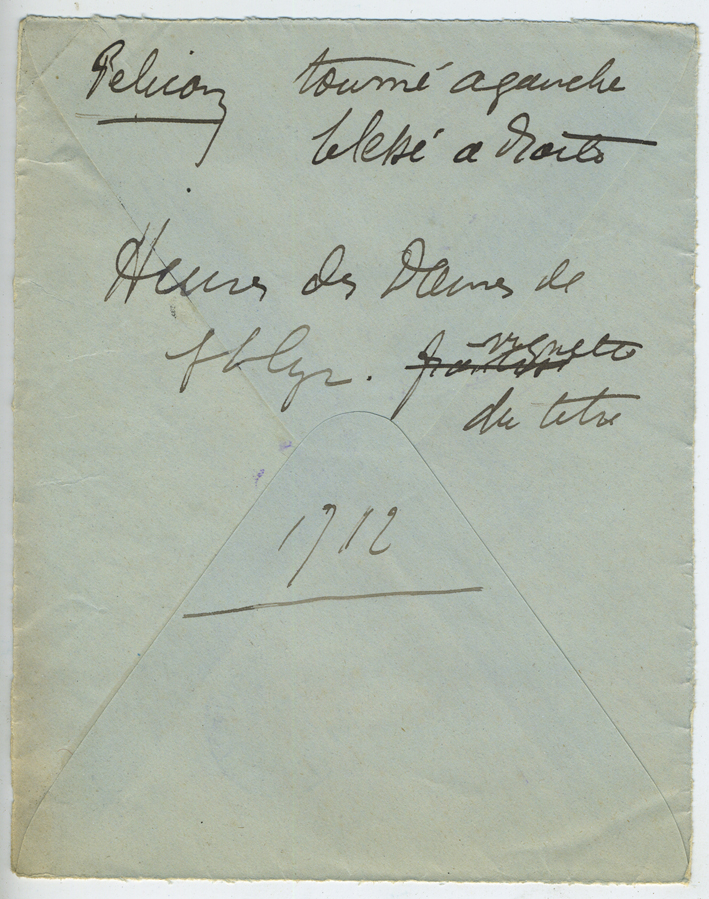 Pelican tourné a gauche
blessé a droite
Heures des Dames de
St Cyr. vignette
du titre
1712